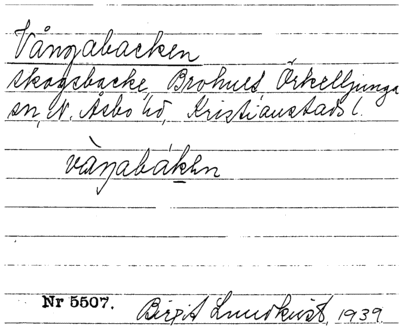 Vångabacken
skogsbacke, Brohult, Örkelljunga
sn, N. Åsbo hd, Kristianstads l.
vàŋabáken
Nr 5507. Birgit Lundkvist, 1939.